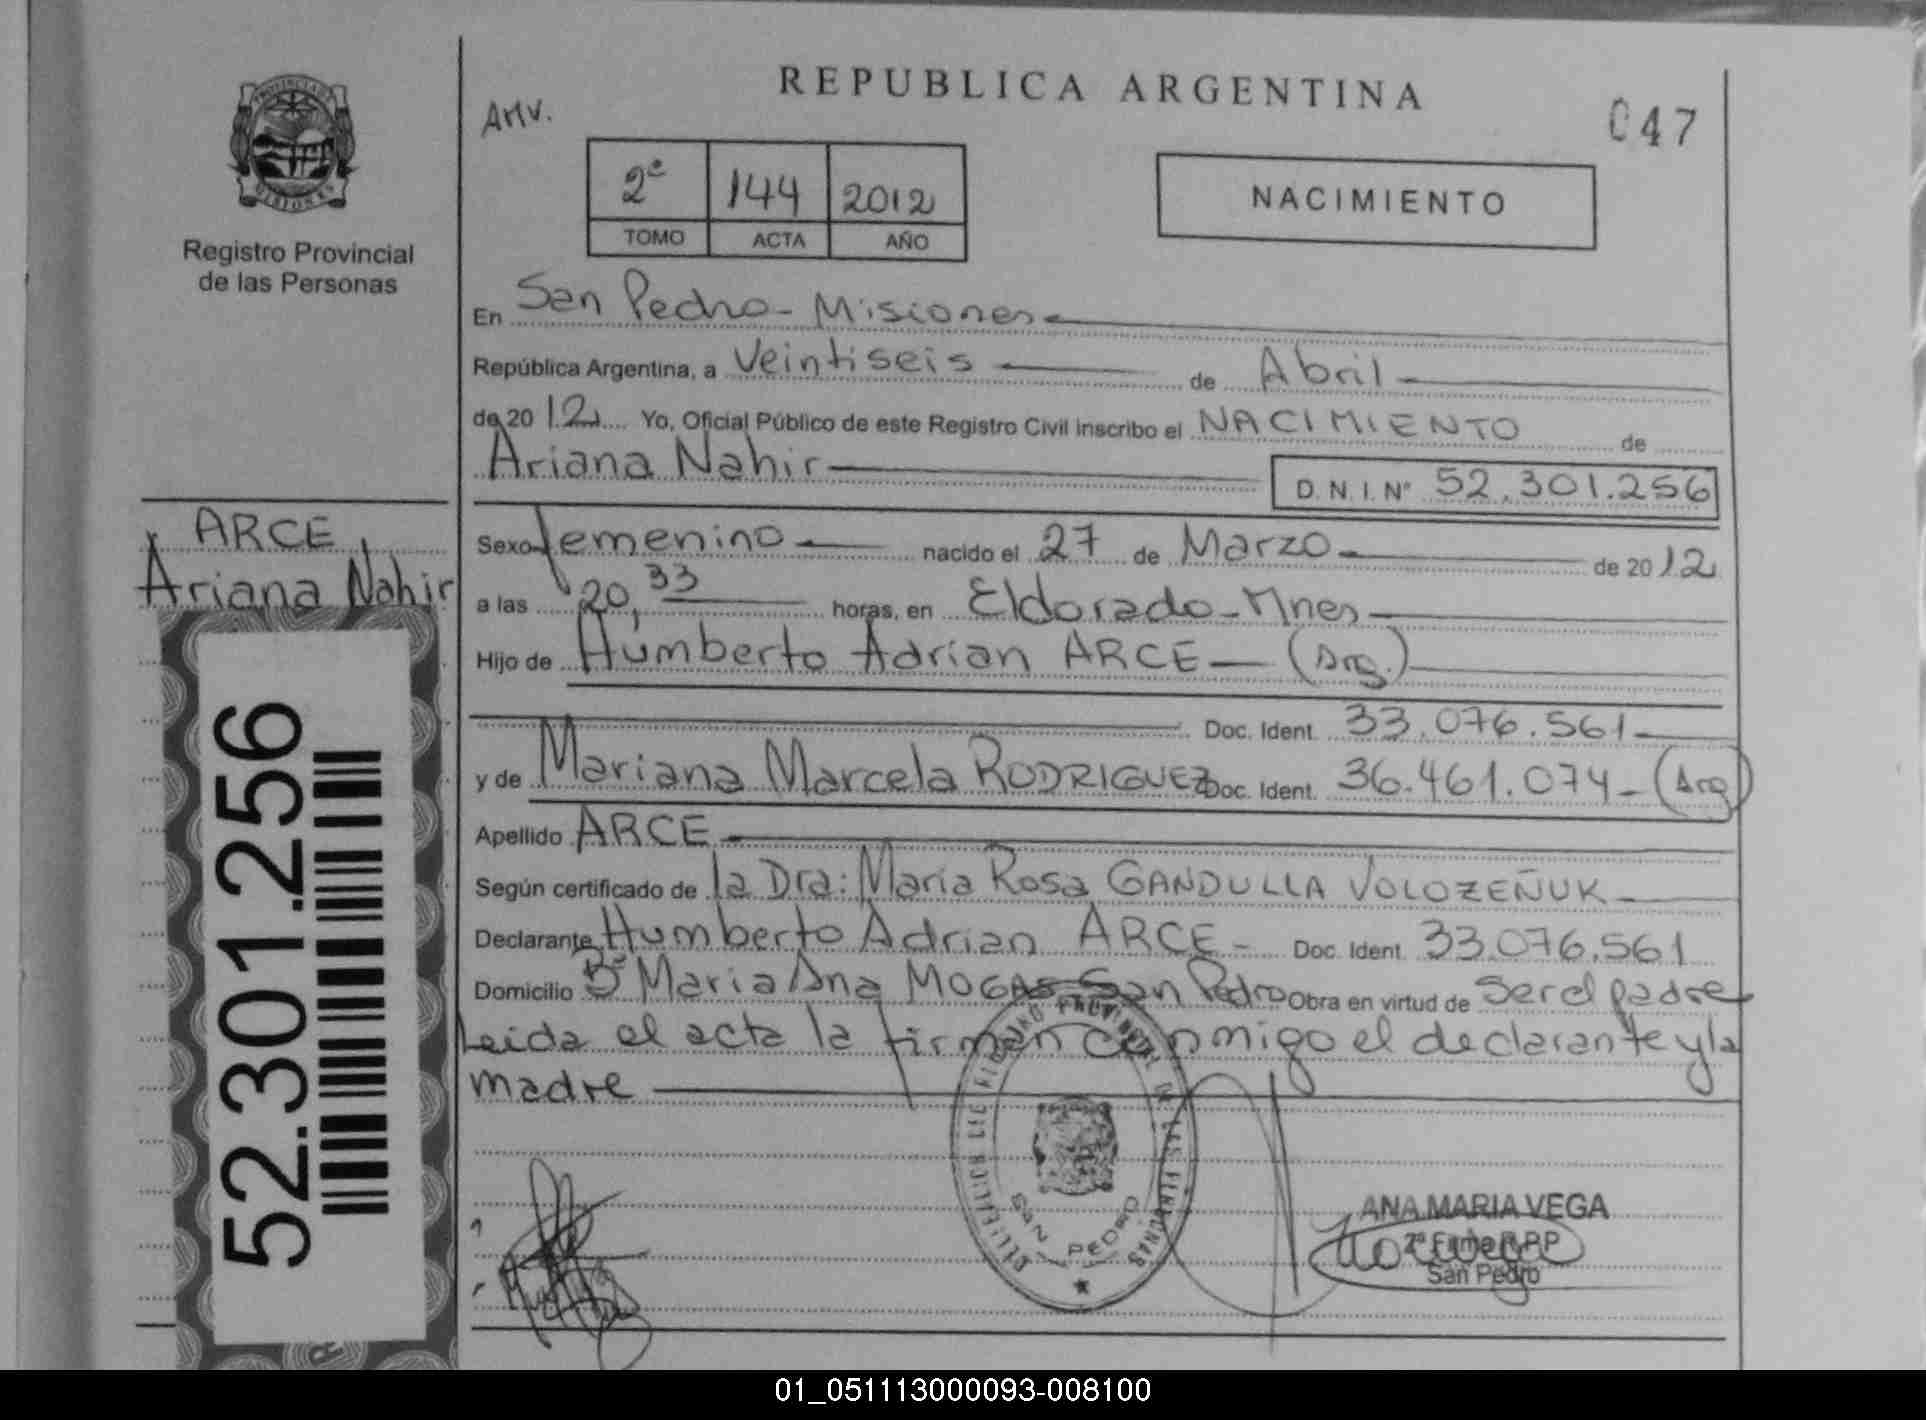 REPUBLICA ARGENTINA
AMV.
047
2º 144 2012
TOMO ACTA AÑO
NACIMIENTO
PROVINCIA DE
MISIONES
Registro Provincial
de las Personas
En San Pedro - Misiones
República Argentina, a Veintiseis de Abril
de 2012 Yo, Oficial Público de este Registro Civil inscribo el NACIMIENTO de
Ariana Nahir D. N. I. Nº 52.301.256
Sexo femenino nacido el 27 de Marzo de 2012
a las 20,33 horas, en Eldorado - Mnes
Hijo de Humberto Adrian ARCE (Arg.)
Doc. Ident. 33.076.561
y de Mariana Marcela RODRIGUEZ Doc. Ident. 36.461.074 - (Arg)
Apellido ARCE
Según certificado de la Dra: Maria Rosa GANDULLA VOLOZEÑUK
Declarante Humberto Adrian ARCE - Doc. Ident. 33.076.561
Domicilio Bº Maria Ana MOGAS San Pedro Obra en virtud de ser el padre
Leida el acta la firman conmigo el declarante y la
madre
ARCE
Ariana Nahir
52.301.256
SAN PEDRO
ANA MARIA VEGA
2ª Firma R.P.P
San Pedro
01_051113000093-008100